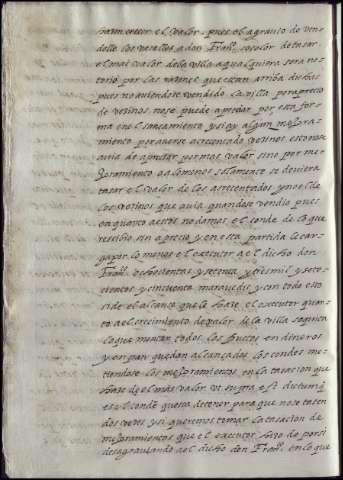 el valor pues el agrauio de uen
delle los vasallos a don Fran.co so color de tasar
el mas valor de la villa a qualquiera sera no
torio por las razones que estan arriba dichas
pues no auiendose vendido la villa por aprecio
de vezinos no se puede apreciar por esta for
ma en el saneamiento y si ay algun mejora
miento por auerse acrecentado vezinos esto no se
auia de aputar por mas valor sino por me
joramiento a lo menos solamente se deuiera
tasar el valor de los acrecentados y no el de
los vezinos que auia quando se vendio pues
en quanto a estos no damos el conde de lo que
rescibio sin aprecio y en esta partida le car
ga por lo menos el executor a el dicho don
Fran.co ochocientas y setenta y tres mil y sete
cientos y cinquenta marauedis y con todo esto
si de el alcance que le haze el executor quan
to a el crecimiento de valor de la villa se quita
lo que montan todos los fructos en dineros
y en pan quedan alcançados los condes me
tiendose los mejoramientos en la tasacion que
haze de el mas valor ut supra est dictum q
es el conde gusta de tener para que no se tasen
dos vezes y si queremos tomar la tasacion de
mejoramientos que el executor hizo de por si
desagrauiando al dicho don Fran.co en lo que